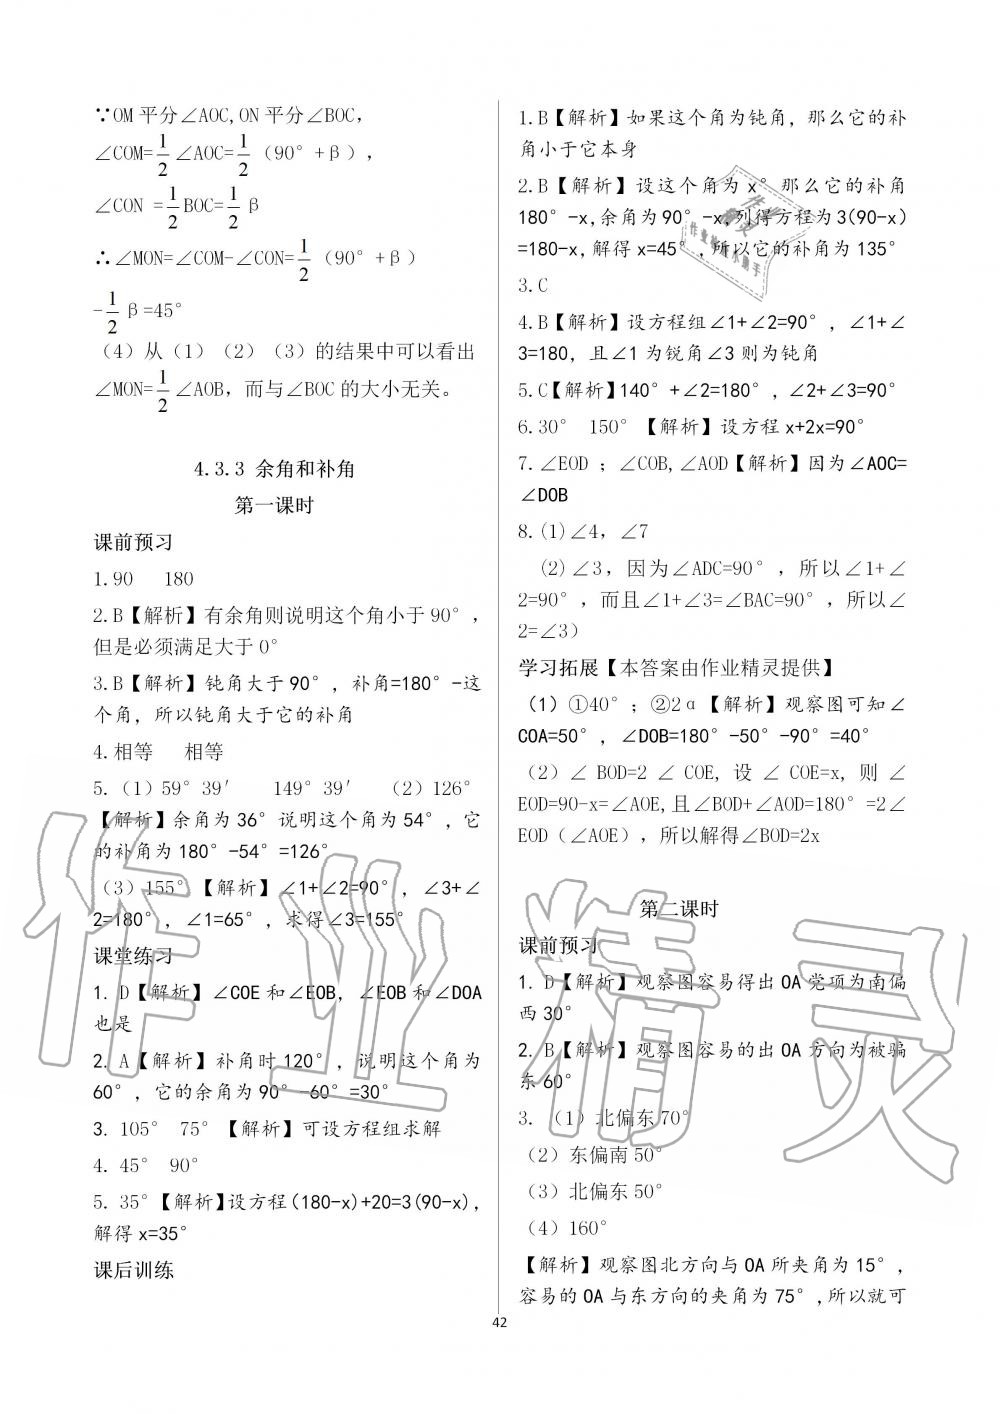 ∵OM 平分∠AOC,ON 平分∠BOC,
∠COM=1/2∠AOC=1/2（90°+β），
∠CON =1/2BOC=1/2β
∴∠MON=∠COM-∠CON=1/2（90°+β）
-1/2β=45°
（4）从（1）（2）（3）的结果中可以看出
∠MON=1/2∠AOB，而与∠BOC 的大小无关。
4.3.3 余角和补角
第一课时
课前预习
1.90 180
2.B【解析】有余角则说明这个角小于 90°，
但是必须满足大于 0°
3.B【解析】钝角大于 90°，补角=180°-这
个角，所以钝角大于它的补角
4.相等 相等
5.（1）59°39′ 149°39′ （2）126°
【解析】余角为 36°说明这个角为 54°，它
的补角为 180°-54°=126°
（3）155°【解析】∠1+∠2=90°，∠3+∠
2=180°，∠1=65°，求得∠3=155°
课堂练习
1. D【解析】∠COE 和∠EOB，∠EOB 和∠DOA
也是
2. A【解析】补角时 120°，说明这个角为
60°，它的余角为 90°-60°=30°
3. 105° 75°【解析】可设方程组求解
4. 45° 90°
5. 35°【解析】设方程(180-x)+20=3(90-x)，
解得 x=35°
课后训练
1.B【解析】如果这个角为钝角，那么它的补
角小于它本身
2.B【解析】设这个角为 x°那么它的补角
180°-x,余角为 90°-x,列得方程为 3(90-x)
=180-x，解得 x=45°，所以它的补角为 135°
3.C
4.B【解析】设方程组∠1+∠2=90°，∠1+∠
3=180，且∠1 为锐角∠3 则为钝角
5.C【解析】140°+∠2=180°，∠2+∠3=90°
6.30° 150°【解析】设方程 x+2x=90°
7.∠EOD ；∠COB,∠AOD【解析】因为∠AOC=
∠DOB
8.(1)∠4，∠7
(2)∠3，因为∠ADC=90°，所以∠1+∠
2=90°，而且∠1+∠3=∠BAC=90°，所以∠
2=∠3）
学习拓展【本答案由作业精灵提供】
（1）①40°；②2α【解析】观察图可知∠
COA=50°，∠DOB=180°-50°-90°=40°
（2）∠ BOD=2 ∠ COE, 设 ∠ COE=x, 则 ∠
EOD=90-x=∠AOE,且∠BOD+∠AOD=180°=2∠
EOD（∠AOE），所以解得∠BOD=2x
第二课时
课前预习
1. D【解析】观察图容易得出 OA 党项为南偏
西 30°
2. B【解析】观察图容易的出 OA 方向为被骗
东 60°
3. （1）北偏东 70°
（2）东偏南 50°
（3）北偏东 50°
（4）160°
【解析】观察图北方向与 OA 所夹角为 15°，
容易的 OA 与东方向的夹角为 75°,所以就可
42
作业精灵